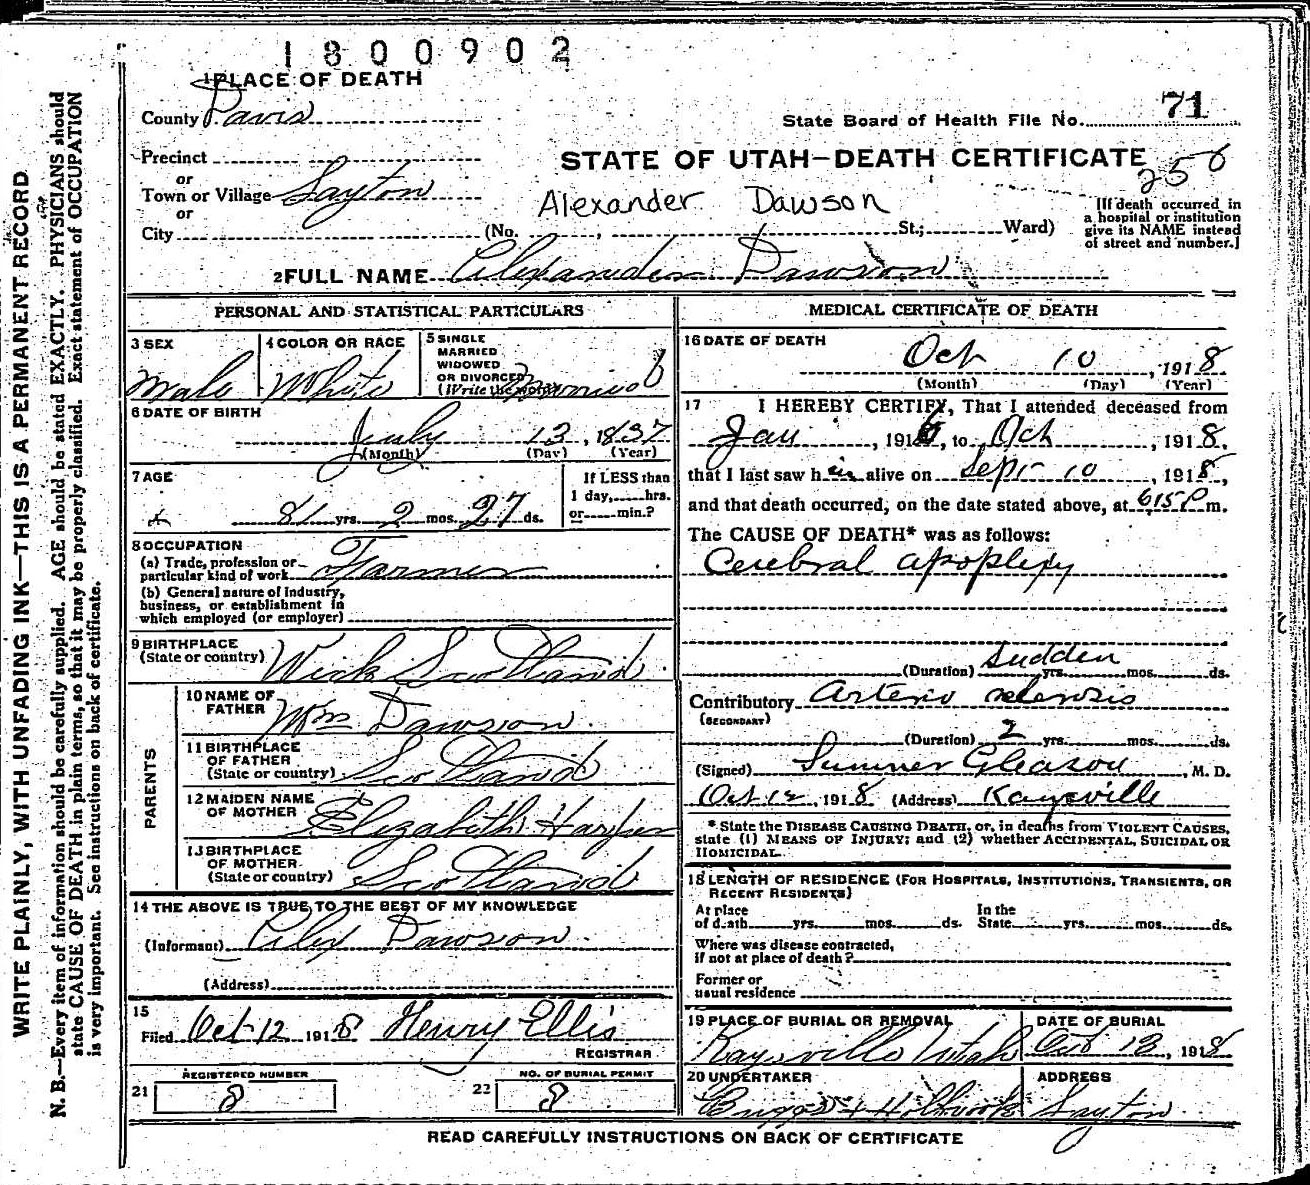 1800902
1 PLACE OF DEATH
County Davis
State Board of Health File No. 71
Precinct
STATE OF UTAH—DEATH CERTIFICATE
256
or
Town or Village Layton
or
City (No. , St.; Ward)
Alexander Dawson
[If death occurred in
a hospital or institution
give its NAME instead
of street and number.]
2 FULL NAME Alexander Dawson
PERSONAL AND STATISTICAL PARTICULARS
3 SEX
Male
4 COLOR OR RACE
White
5 SINGLE
MARRIED
WIDOWED
OR DIVORCED
(Write the word)
Married
6 DATE OF BIRTH
July 13, 1837
(Month) (Day) (Year)
7 AGE
81 yrs. 2 mos. 27 ds.
If LESS than
1 day, hrs.
or min.?
8 OCCUPATION
(a) Trade, profession or
particular kind of work Farmer
(b) General nature of Industry,
business, or establishment in
which employed (or employer)
9 BIRTHPLACE
(State or country) Wick Scotland
PARENTS
10 NAME OF
FATHER Wm Dawson
11 BIRTHPLACE
OF FATHER
(State or country) Scotland
12 MAIDEN NAME
OF MOTHER Elizabeth
13 BIRTHPLACE
OF MOTHER
(State or country) Scotland
14 THE ABOVE IS TRUE TO THE BEST OF MY KNOWLEDGE
(Informant) Alex Dawson
(Address)
15
Filed Oct 12 1918 Henry Ellis
REGISTRAR
REGISTERED NUMBER
21 8
NO. OF BURIAL PERMIT
22 8
MEDICAL CERTIFICATE OF DEATH
16 DATE OF DEATH
Oct 10, 1918
(Month) (Day) (Year)
17 I HEREBY CERTIFY, That I attended deceased from
Jan, 1916, to Oct, 1918,
that I last saw him alive on Sept 10, 1918,
and that death occurred, on the date stated above, at 615 P m.
The CAUSE OF DEATH* was as follows:
Cerebral apoplexy
(Duration) Sudden yrs. mos. ds.
Contributory Arterio sclerosis
(SECONDARY)
(Duration) 2 yrs. mos. ds.
(Signed) Sumner Gleason, M. D.
Oct 12, 1918 (Address) Kaysville
* State the DISEASE CAUSING DEATH, or, in deaths from VIOLENT CAUSES,
state (1) MEANS OF INJURY; and (2) whether ACCIDENTAL, SUICIDAL OR
HOMICIDAL.
18 LENGTH OF RESIDENCE (FOR HOSPITALS, INSTITUTIONS, TRANSIENTS, OR
RECENT RESIDENTS)
At place
of death yrs. mos. ds.
In the
State yrs. mos. ds.
Where was disease contracted,
if not at place of death?
Former or
usual residence
19 PLACE OF BURIAL OR REMOVAL
Kaysville Utah
DATE OF BURIAL
Oct 13, 1918
20 UNDERTAKER
& Holbrook
ADDRESS
Layton
READ CAREFULLY INSTRUCTIONS ON BACK OF CERTIFICATE
WRITE PLAINLY, WITH UNFADING INK—THIS IS A PERMANENT RECORD
N. B.—Every item of information should be carefully supplied. AGE should be stated EXACTLY. PHYSICIANS should
state CAUSE OF DEATH in plain terms, so that it may be properly classified. Exact statement of OCCUPATION
is very important. See instructions on back of certificate.